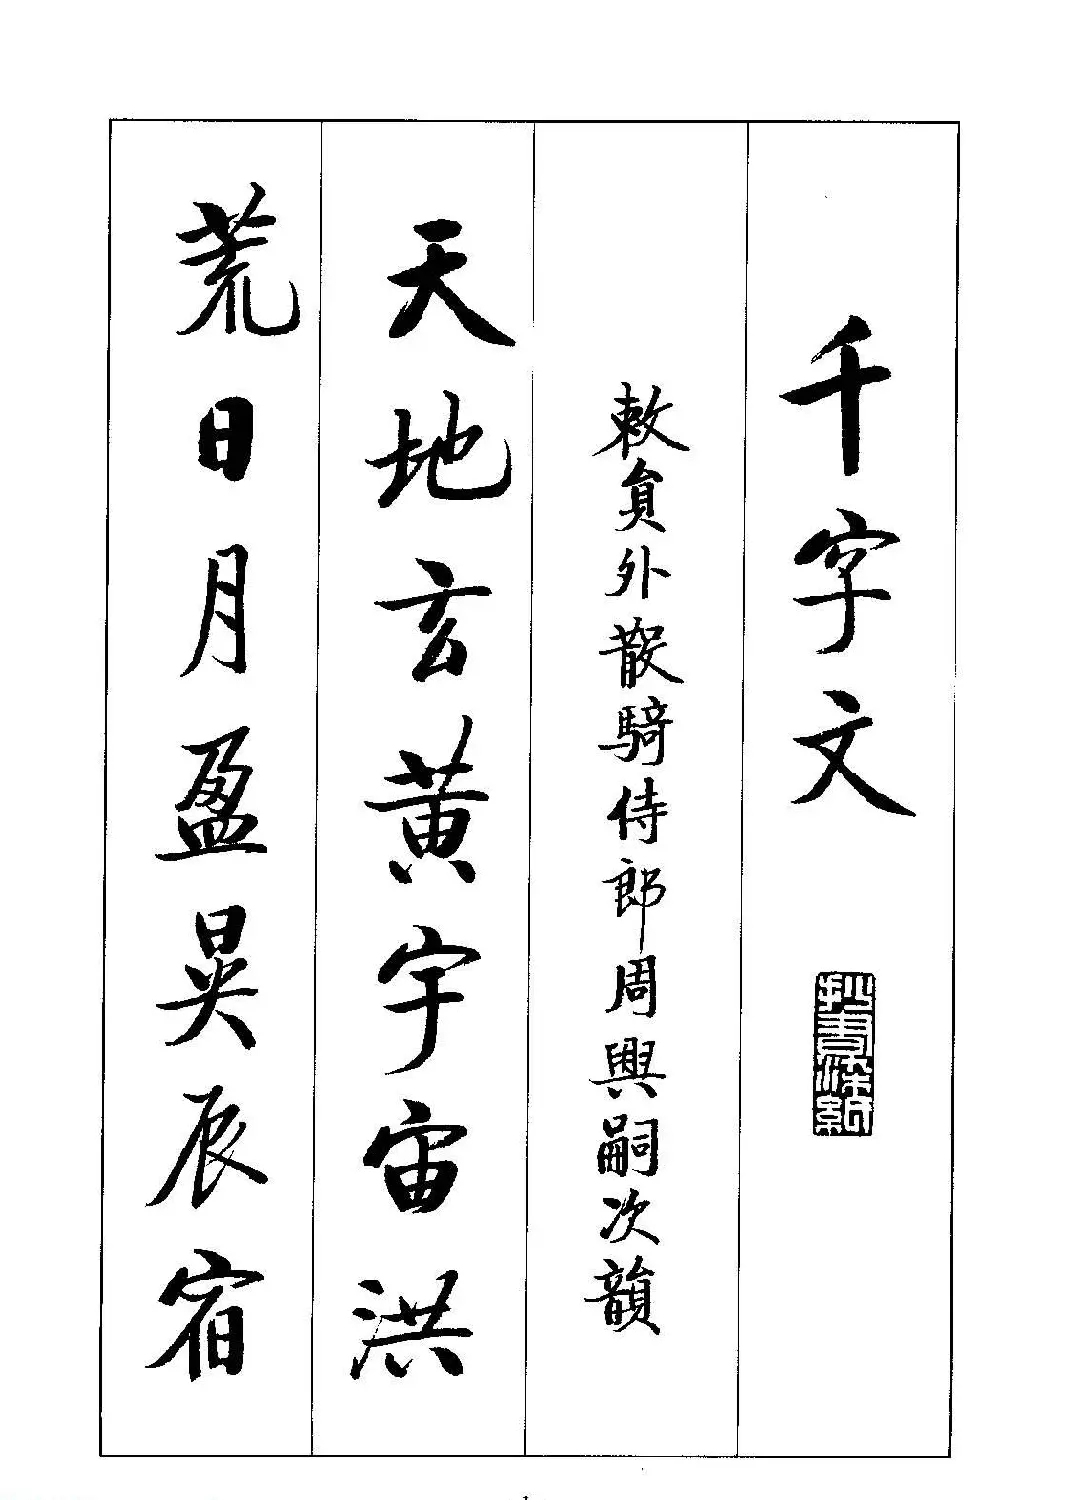 千字文
敕貟外散騎侍郎周興嗣次韻
天地玄黄宇宙洪
荒日月盈昃辰宿